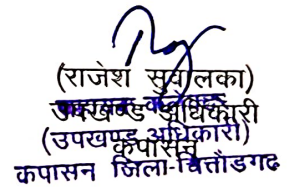 (राजेश सुवालका)
उपखण्ड अधिकारी
(उपखण्ड अधिकारी)
कपासन
कपासन जिला-चित्तौडगढ